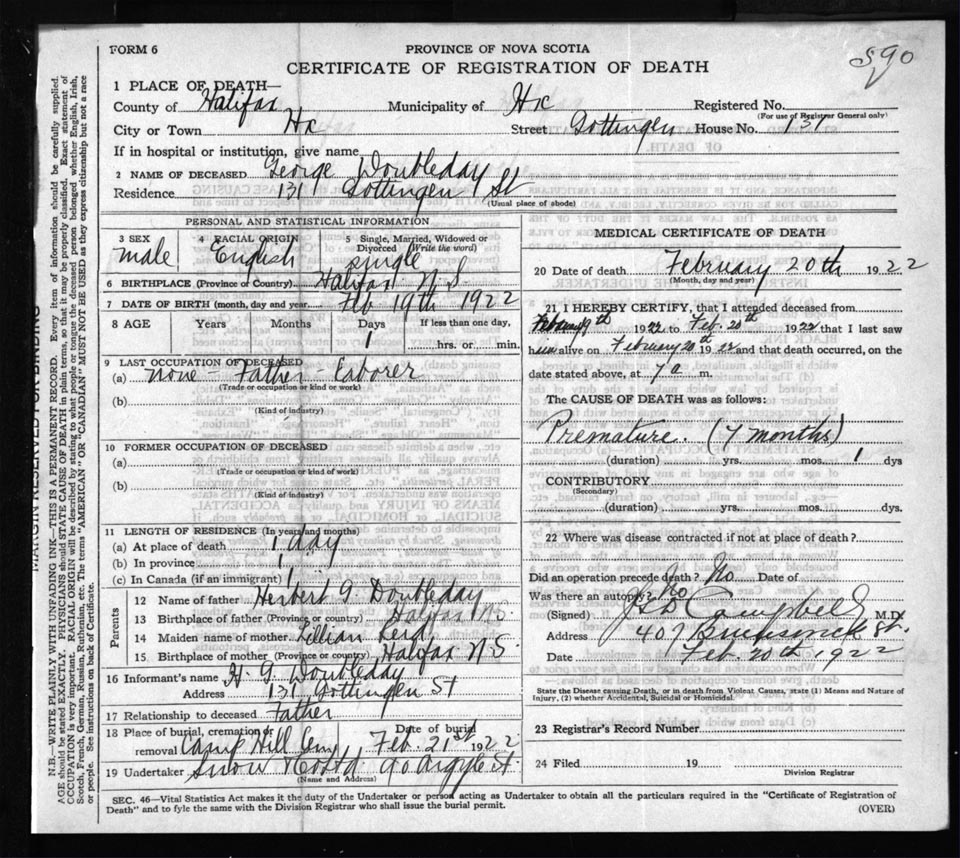 FORM 6
PROVINCE OF NOVA SCOTIA
590
CERTIFICATE OF REGISTRATION OF DEATH
1 PLACE OF DEATH—
County of Halifax Municipality of Hx Registered No.
(For use of Registrar General only)
City or Town Hx Street Gottingen House No. 131
If in hospital or institution, give name
2 NAME OF DECEASED George Doubleday
Residence 131 Gottingen St
(Usual place of abode)
PERSONAL AND STATISTICAL INFORMATION
3 SEX male
4 RACIAL ORIGIN English
5 Single, Married, Widowed or Divorced (Write the word) single
6 BIRTHPLACE (Province or Country) Halifax N.S.
7 DATE OF BIRTH (month, day and year) Feb 19th 1922
8 AGE Years Months Days If less than one day,
1 hrs. or min.
9 LAST OCCUPATION OF DECEASED
(a) none - Father - Laborer
(Trade or occupation or kind of work)
(b)
(Kind of industry)
10 FORMER OCCUPATION OF DECEASED
(a)
(Trade or occupation or kind of work)
(b)
(Kind of industry)
11 LENGTH OF RESIDENCE (In years and months)
(a) At place of death 1 day
(b) In province 1
(c) In Canada (if an immigrant) 1
Parents
12 Name of father Herbert G. Doubleday
13 Birthplace of father (Province or country) Halifax N S
14 Maiden name of mother Lillian
15 Birthplace of mother (Province or country) Halifax N.S.
16 Informant's name H. G. Doubleday
Address 131 Gottingen St
17 Relationship to deceased Father
18 Place of burial, cremation or removal Camp Hill Cem Date of burial Feb. 21st 1922
19 Undertaker Snow & Co Ltd 90 Argyle St.
(Name and Address)
MEDICAL CERTIFICATE OF DEATH
20 Date of death February 20th 1922
(Month, day and year)
21 I HEREBY CERTIFY, that I attended deceased from
1922 to Feb. 20th 1922 that I last saw
him alive on February 20th 1922 and that death occurred, on the
date stated above, at 7 a m.
The CAUSE OF DEATH was as follows:
Premature. (7 months)
(duration) yrs. mos. 1 dys
CONTRIBUTORY
(Secondary)
(duration) yrs. mos. dys.
22 Where was disease contracted if not at place of death?
Did an operation precede death? No Date of
Was there an autopsy? No
(Signed) Campbell M.D.
Address 407 Brunswick St.
Date Feb. 20th 1922
State the Disease causing Death, or in death from Violent Causes, state (1) Means and Nature of Injury, (2) whether Accidental, Suicidal or Homicidal.
23 Registrar's Record Number
24 Filed 19
Division Registrar
SEC. 46—Vital Statistics Act makes it the duty of the Undertaker or person acting as Undertaker to obtain all the particulars required in the "Certificate of Registration of
Death" and to fyle the same with the Division Registrar who shall issue the burial permit.
(OVER)
MARGIN RESERVED FOR BINDING
N.B.—WRITE PLAINLY WITH UNFADING INK—THIS IS A PERMANENT RECORD. Every item of information should be carefully supplied.
AGE should be stated EXACTLY. PHYSICIANS should STATE CAUSE OF DEATH in plain terms, so that it may be properly classified. Exact statement of
OCCUPATION is very important. RACIAL ORIGIN will be described by stating to what people or tongue the deceased person belonged whether English, Irish,
Scotch, French, German, Russian, Ruthenian, etc. The terms "AMERICAN" OR "CANADIAN" MUST NOT BE USED as they express citizenship but not a race
or people. See instructions on back of Certificate.